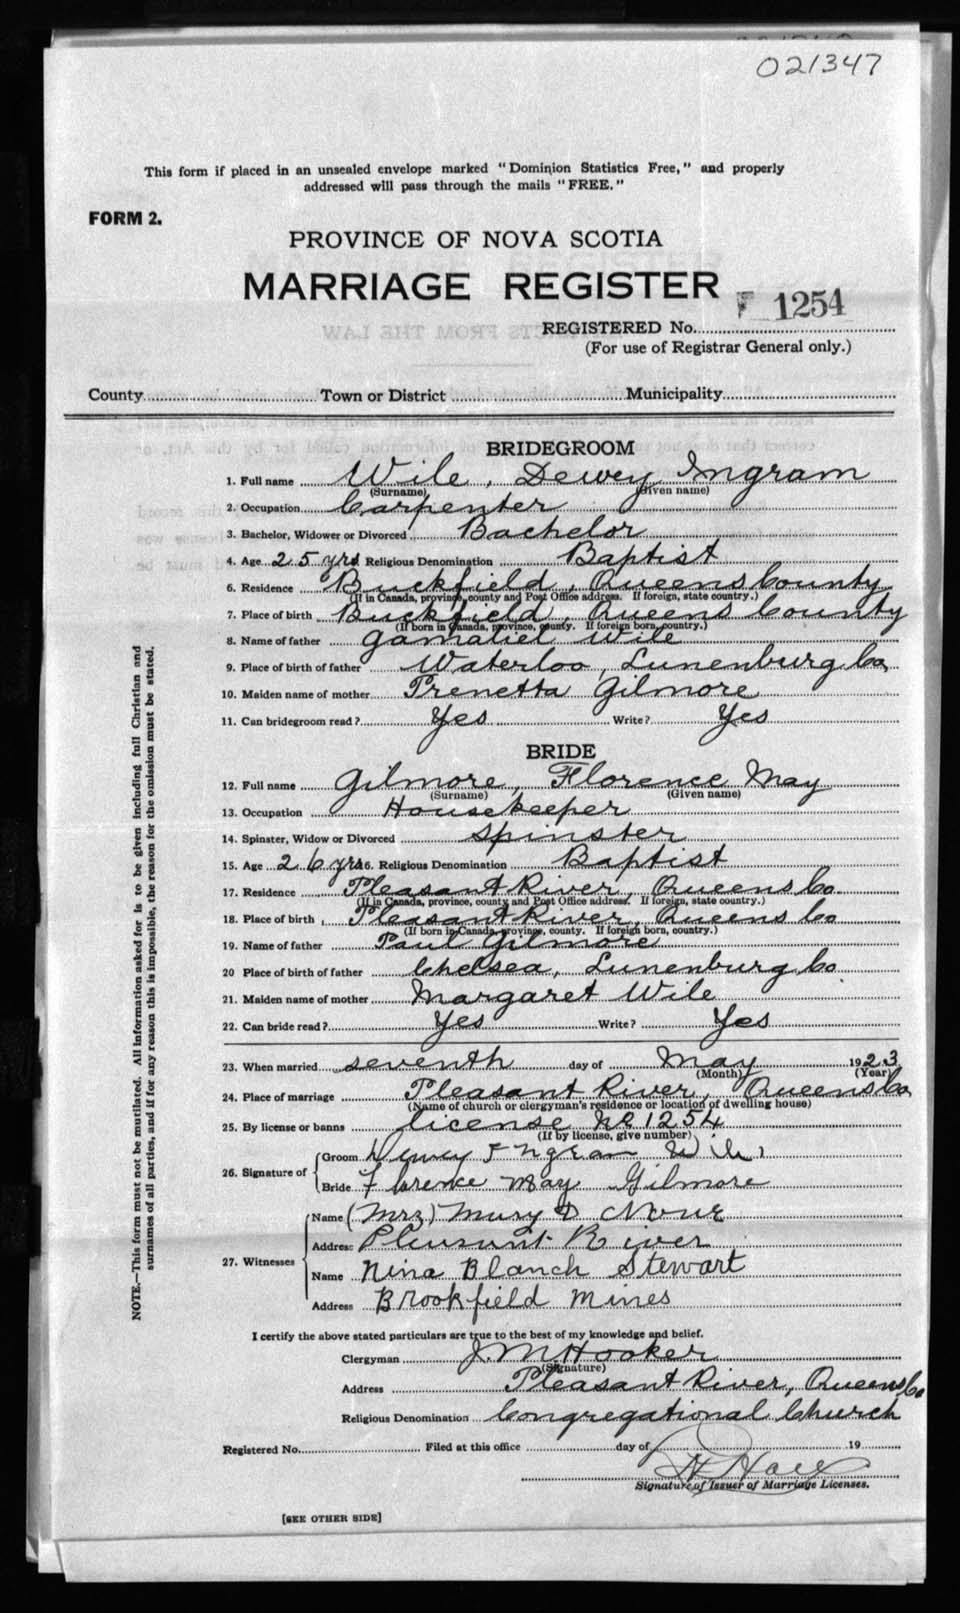 021347
This form if placed in an unsealed envelope marked "Dominion Statistics Free," and properly
addressed will pass through the mails "FREE."
FORM 2.
PROVINCE OF NOVA SCOTIA
MARRIAGE REGISTER
REGISTERED No. F 1254
(For use of Registrar General only.)
County Town or District Municipality
BRIDEGROOM
1. Full name Wile, Dewey Ingram
(Surname) (Given name)
2. Occupation Carpenter
3. Bachelor, Widower or Divorced Bachelor
4. Age 25 yrs Religious Denomination Baptist
6. Residence Buckfield, Queens County
(If in Canada, province, county and Post Office address. If foreign, state country.)
7. Place of birth Buckfield, Queens County
(If born in Canada, province, county. If foreign born, country.)
8. Name of father Gamaliel Wile
9. Place of birth of father Waterloo, Lunenburg Co,
10. Maiden name of mother Prenetta Gilmore
11. Can bridegroom read? Yes Write? Yes
BRIDE
12. Full name Gilmore, Florence May
(Surname) (Given name)
13. Occupation Housekeeper
14. Spinster, Widow or Divorced Spinster
15. Age 26 yrs 16. Religious Denomination Baptist
17. Residence Pleasant River, Queens Co.
(If in Canada, province, county and Post Office address. If foreign, state country.)
18. Place of birth Pleasant River, Queens Co
(If born in Canada, province, county. If foreign born, country.)
19. Name of father Paul Gilmore
20 Place of birth of father Chelsea, Lunenburg Co
21. Maiden name of mother Margaret Wile
22. Can bride read? Yes Write? Yes
23. When married seventh day of May 1923
(Month) (Year)
24. Place of marriage Pleasant River, Queens Co,
(Name of church or clergyman's residence or location of dwelling house)
25. By license or banns license No 1254
(If by license, give number)
26. Signature of
Groom Dewey Ingram Wile
Bride Florence May Gilmore
27. Witnesses
Name (Mrs) Mary D
Address Pleasant River
Name Nina Blanch Stewart
Address Brookfield Mines
I certify the above stated particulars are true to the best of my knowledge and belief.
Clergyman J. M Hooker
(Signature)
Address Pleasant River, Queens Co
Religious Denomination Congregational Church
Registered No. Filed at this office day of 19
Signature of Issuer of Marriage Licenses.
[SEE OTHER SIDE]
NOTE.—This form must not be mutilated. All information asked for is to be given including full Christian and
surnames of all parties, and if for any reason this is impossible, the reason for the omission must be stated.